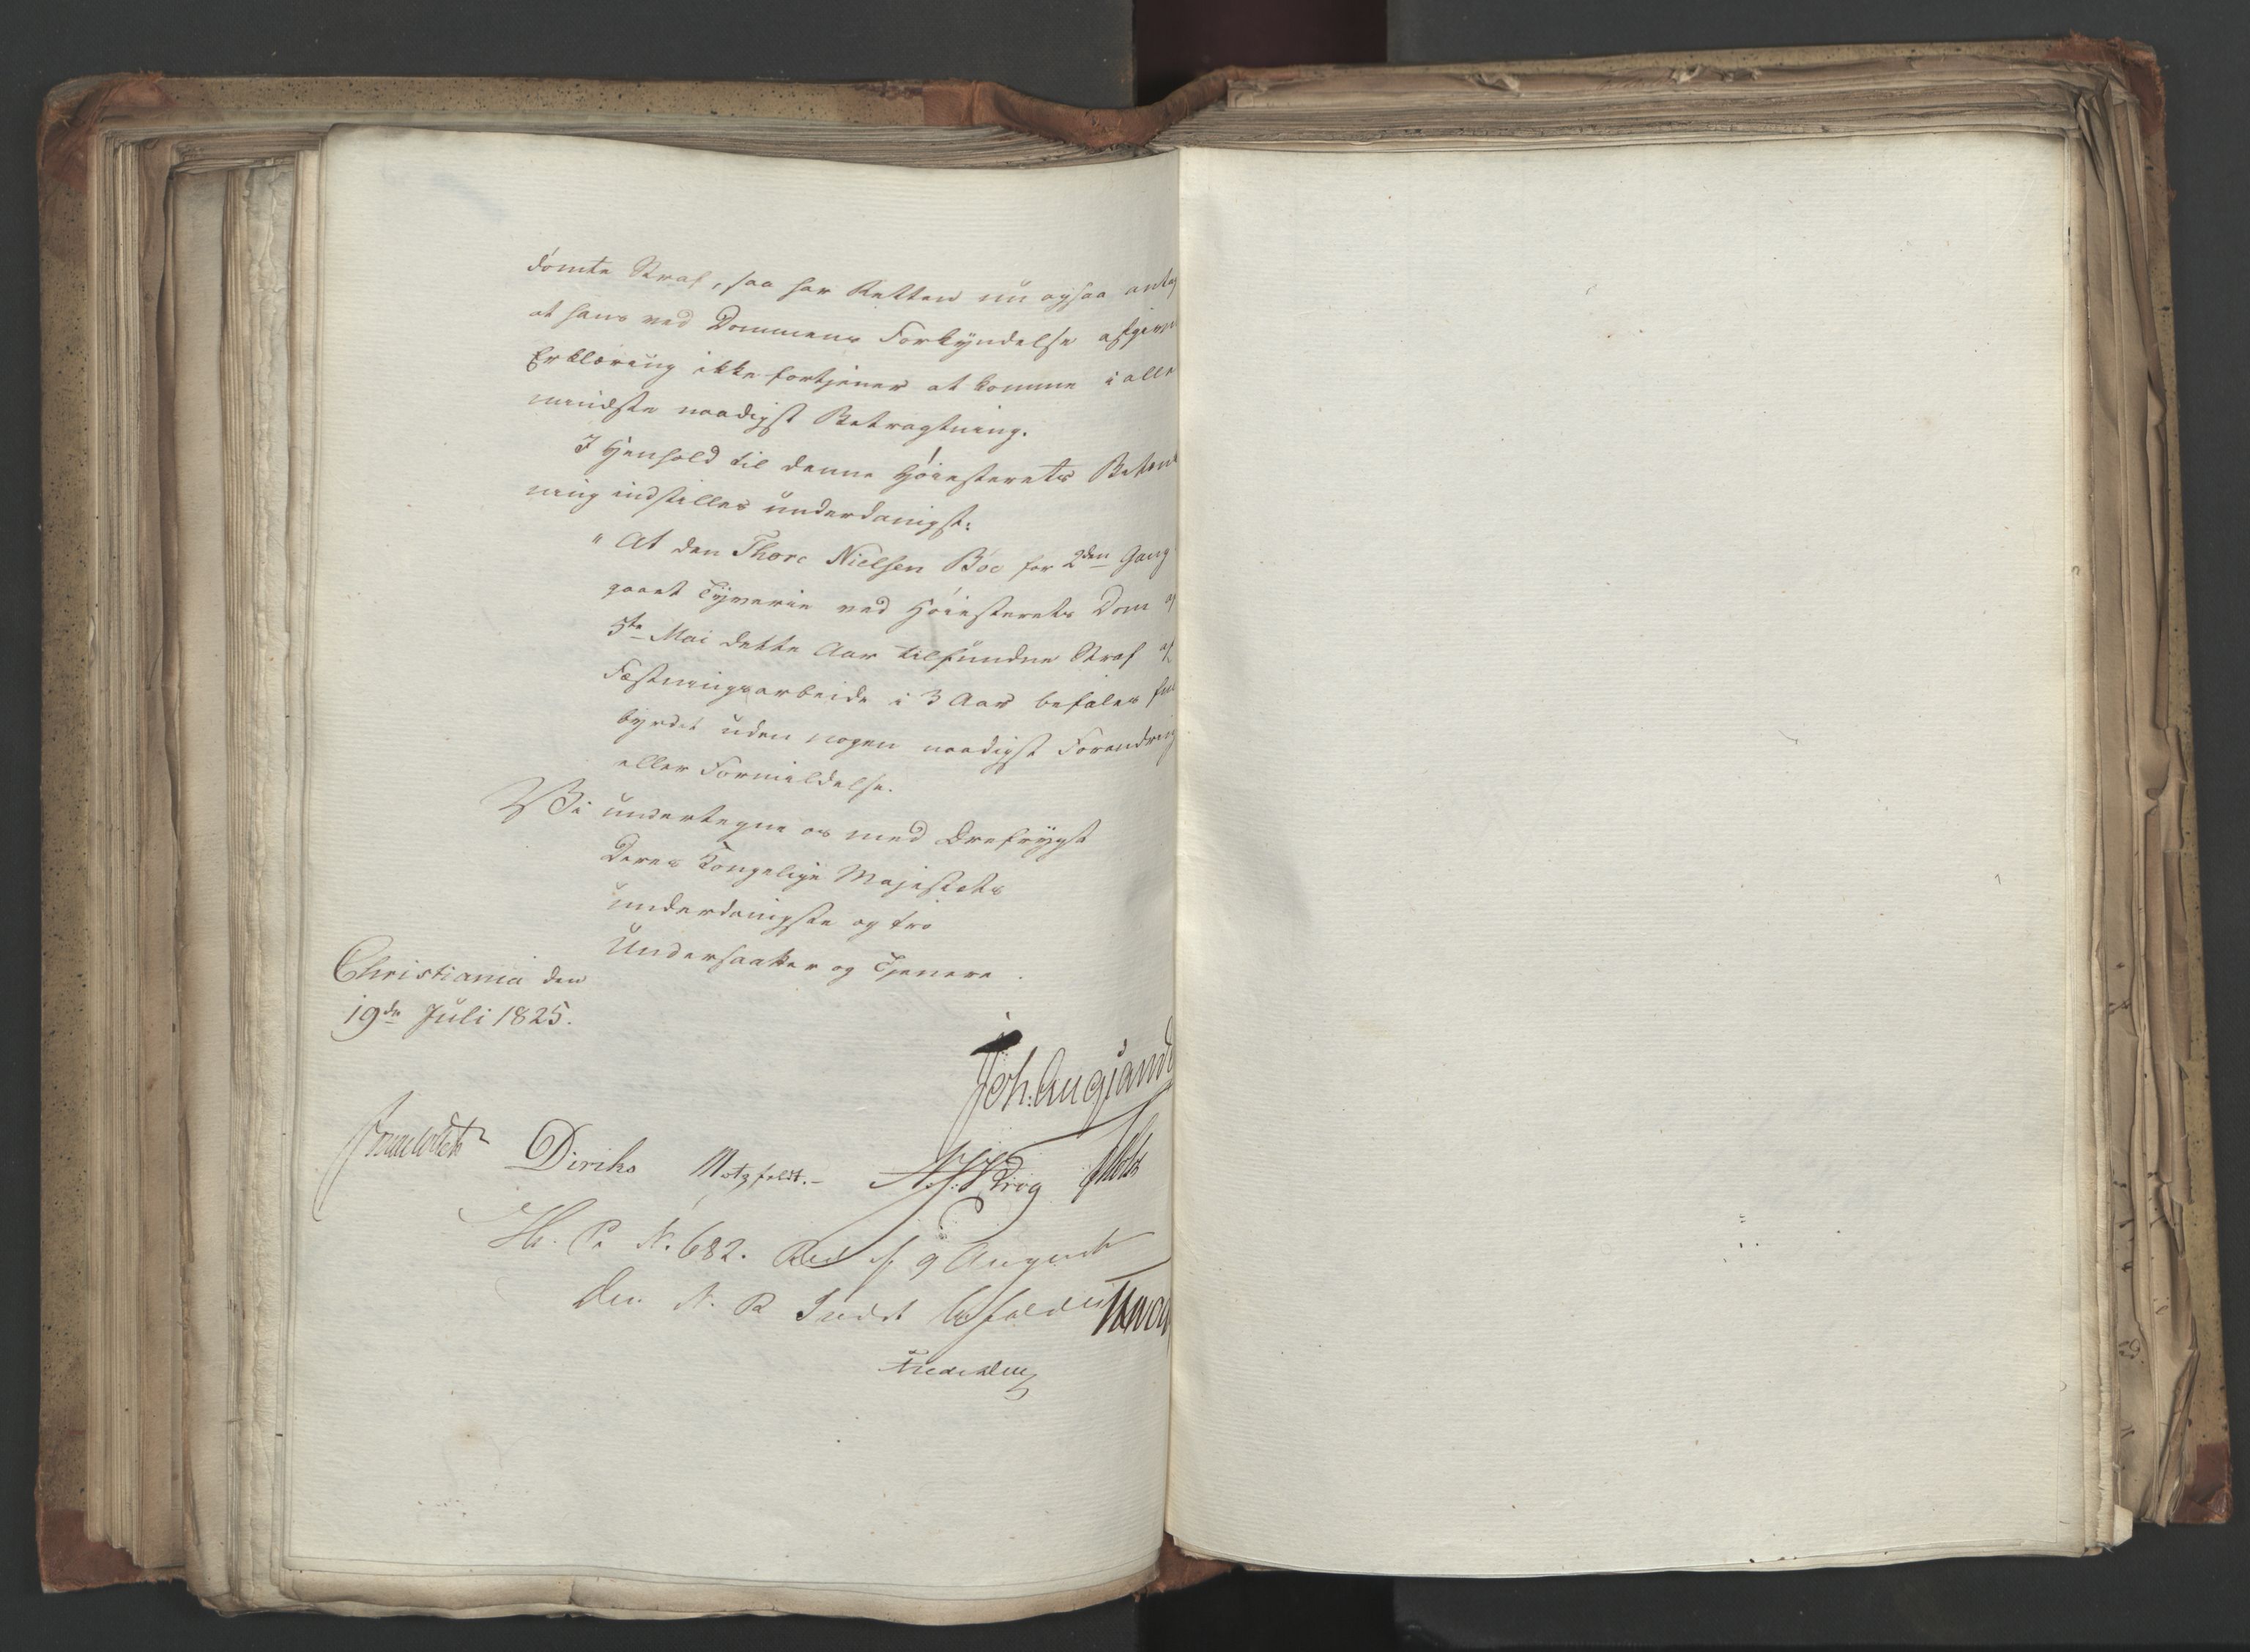 dømte Straf, saa har Retten nu ogsaa antag
at hans ved Dommens Forkyndelse afgivne
Erklæring ikke fortjener at komme i aller
mindste naadigst Betragtning.
I Henhold til denne Høiesterets Betænk
ning indstilles underdanigst:
" At den Thore Nielsen Boe for 2den Gang
gaaet Tyverie ved Høiesterets Dom af
5te Mai dette Aar tilfundne Straf af
Fæstningsarbeide i 3 Aar befales fuld
byrdet uden nogen naadigst Forandring
eller Formildelse.
Vi undertegne os med Ærefrygt
Deres Kongelige Majestæts
underdanigste og tro
Undersaatter og Tjenere.
Christiania den
19de Juli 1825.
Joh: Aug: Sand
Diriks Motzfeldt.- Krog
N. 682. 9 August
Den N. R. Indst befaldet